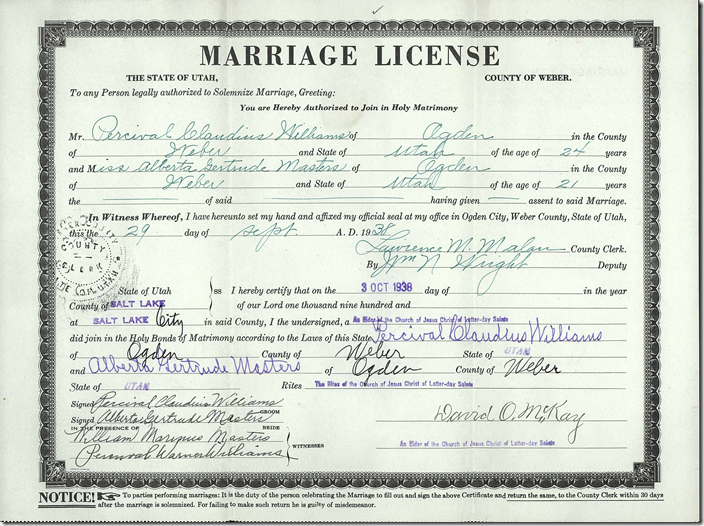 MARRIAGE LICENSE
THE STATE OF UTAH, COUNTY OF WEBER.
To any Person legally authorized to Solemnize Marriage, Greeting:
You are Hereby Authorized to Join in Holy Matrimony
Mr. Percival Claudius Williams of Ogden in the County
of Weber and State of Utah of the age of 24 years
and Miss Alberta Gertrude Masters of Ogden in the County
of Weber and State of Utah of the age of 21 years
the of said having given assent to said Marriage.
In Witness Whereof, I have hereunto set my hand and affixed my official seal at my office in Ogden City, Weber County, State of Utah,
this the 29 day of Sept. A. D. 1938
Lawrence M. Malan County Clerk.
By Wm N Wright Deputy
COUNTY
CLERK
State of Utah }ss I hereby certify that on the 3 OCT 1938 day of in the year
County of SALT LAKE of our Lord one thousand nine hundred and
at SALT LAKE City in said County, I the undersigned, a An Elder of the Church of Jesus Christ of Latter-day Saints
did join in the Holy Bonds of Matrimony according to the Laws of this State Percival Claudius Williams
of Ogden County of Weber State of UTAH
and Alberta Gertrude Masters of Ogden County of Weber
State of UTAH Rites The Rites of the Church of Jesus Christ of Latter-day Saints
Signed Percival Claudius Williams
GROOM
Signed Alberta Gertrude Masters
BRIDE
David O. McKay
IN THE PRESENCE OF
William Marquis Masters
Percival Warner Williams } WITNESSES
An Elder of the Church of Jesus Christ of Latter-day Saints
NOTICE! To parties performing marriages: It is the duty of the person celebrating the Marriage to fill out and sign the above Certificate and return the same, to the County Clerk within 30 days
after the marriage is solemnized. For failing to make such return he is guilty of misdemeanor.